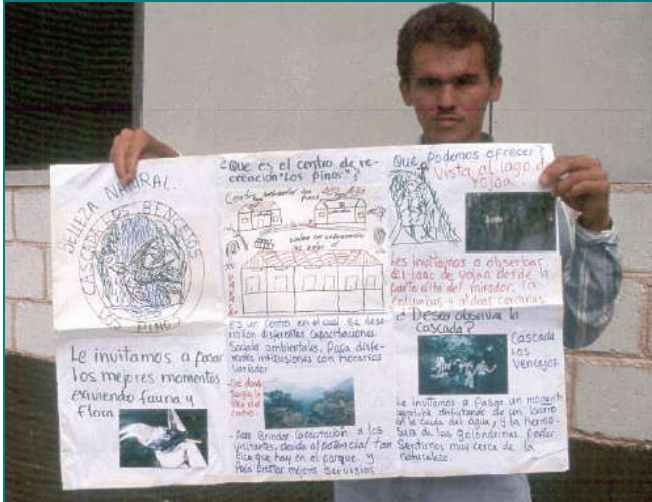 BELLEZA NATURAL.
CASCADA LOS BENCEJOS
LOS PINOS
Le invitamos a pasar
los mejores momentos
exiviendo fauna y
flora.
¿Que es el centro de re-
creación "Los pinos"?
Centro
Es un centro en el cual se desa-
rrollan diferentes capacitaciones.
Sociales ambientales. Para dife-
rentes intitusiones con horarios
variador
-De donde
Surge la
idea del
centro-
-Para Brindar Capacitación a los
visitantes, devido al potencial turi
stico que hay en el parque. y
Para prestar mejores Servicios
Que Podemos ofrecer?
Vista al lago d
Yojoa.
Les invitamos a observar
El lago de yojoa desde la
parte alta del mirador, la
columbus y aldeas cercanas
¿Desea observar la
Cascada?
Cascada
Los
Vencejos.
Le invitamos a Pasar un momento
agradable disfrutando de un baño
en la caida del agua, y la hermo-
sura de las golondrinas. poder
Sentirnos muy cerca de la
naturaleza.